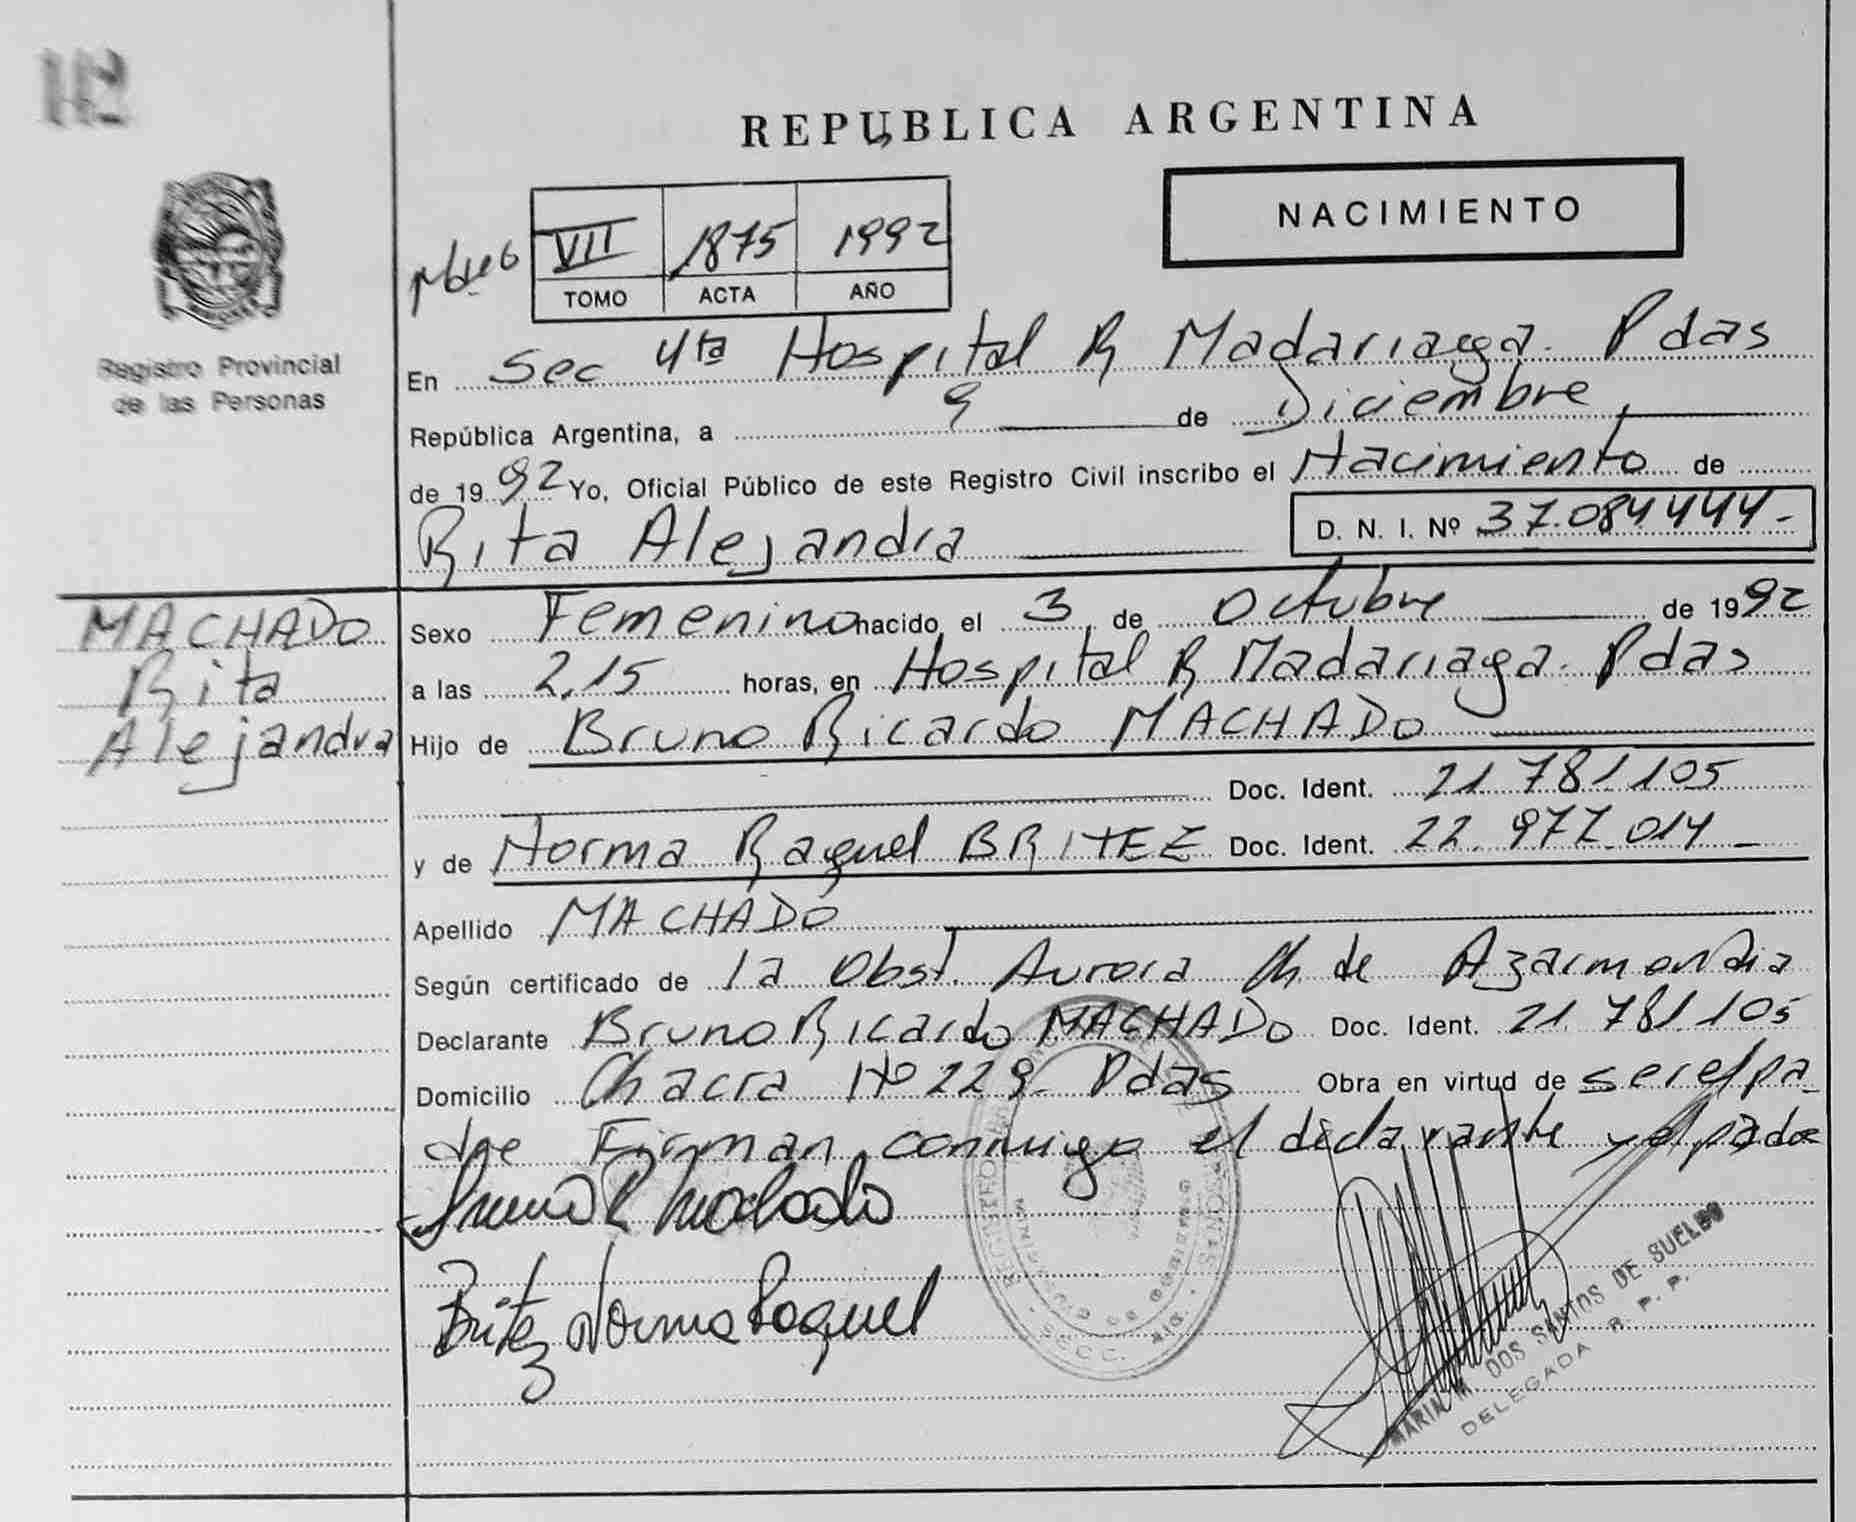 112
REPUBLICA ARGENTINA
NACIMIENTO
VII 1875 1992
TOMO ACTA AÑO
Registro Provincial
de las Personas
En Sec 4ta Hospital R Madariaga. Pdas
República Argentina, a 9 de Diciembre
de 1992 Yo, Oficial Público de este Registro Civil inscribo el Nacimiento de
Rita Alejandra D. N. I. Nº 37.084444-
MACHADO
Rita
Alejandra
Sexo Femenino nacido el 3 de Octubre de 1992
a las 2.15 horas, en Hospital R Madariaga. Pdas
Hijo de Bruno Ricardo MACHADO
Doc. Ident. 21 781.105
y de Norma Raquel BRITEZ Doc. Ident. 22.977.014
Apellido MACHADO
Según certificado de la Obst. Aurora Ch de Azarmendia
Declarante Bruno Ricardo MACHADO Doc. Ident. 21.781.105
Domicilio Chacra Nº 229. Pdas Obra en virtud de ser el pa-
dre Firman conmigo el declarante y el padre
Bruno R Machado
Britez Norma Raquel
MARIA M. DOS SANTOS DE SUELDO
DELEGADA R. P. P.